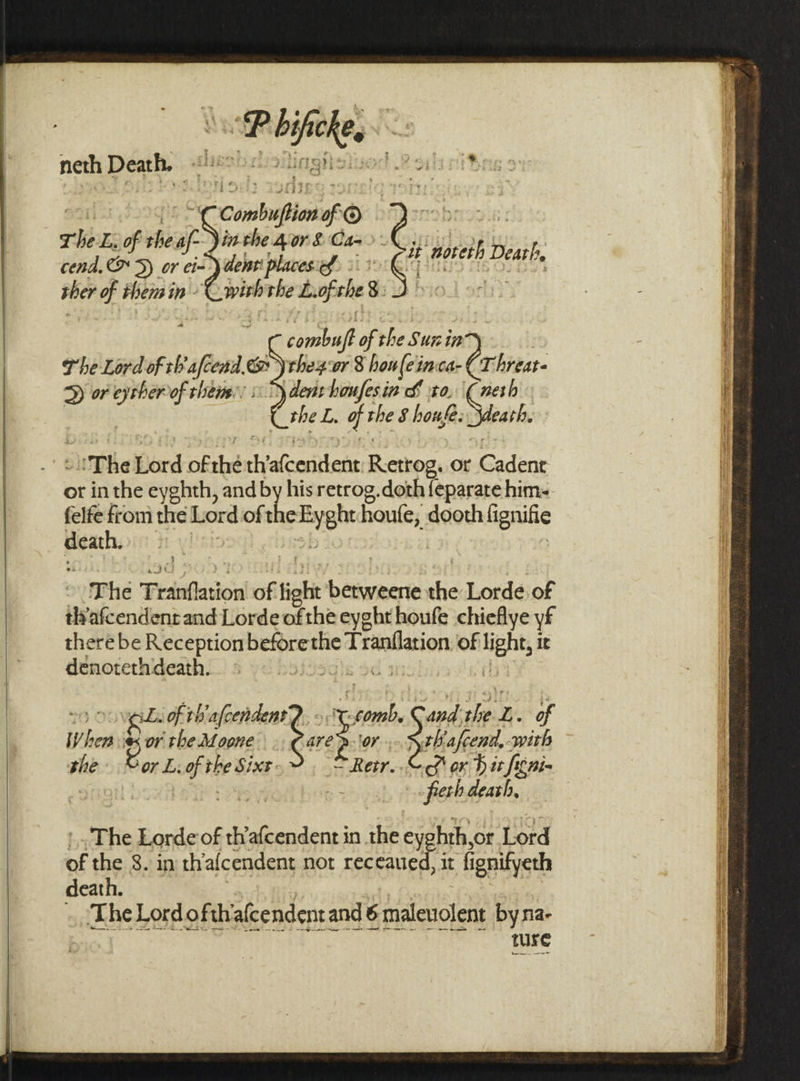 Phisicke.
neth Death.
{Combustion of ☉}
The L. of the as-{in the 4 or 8 Ca-}it noteth Death.
cend. & ☽ or ei-{dent places ☍}
ther of them in {with the L.of the 8}
{combust of the Sun in}
The Lord of th'ascend.&{the 4 or 8 house in ca-}{Threat-
☽ or eyther of them {dent houses in ☌ to}{neth
{the L. of the 8 house.}death.
The Lord of the th'ascendent Retrog. or Cadent
or in the eyghth, and by his retrog. doth separate him-
selfe from the Lord of the Eyght house, dooth signifie
death.
The Translation of light betweene the Lorde of
th'ascendent and Lorde of the eyght house chieflye yf
there be Reception before the Translation of light, it
denoteth death.
{L. of th'ascendent} {comb. {and the L. of
When {or the Moone }are{ or {th'ascend. with
the {or L. of the Sixt} {Retr. {♂ or ♄ it signi-
fieth death.
The Lorde of th'ascendent in the eyghth, or Lord
of the 8. in th'ascendent not receaued, it signifyeth
death.
The Lord of th'ascendent and 6 maleuolent by na-
ture